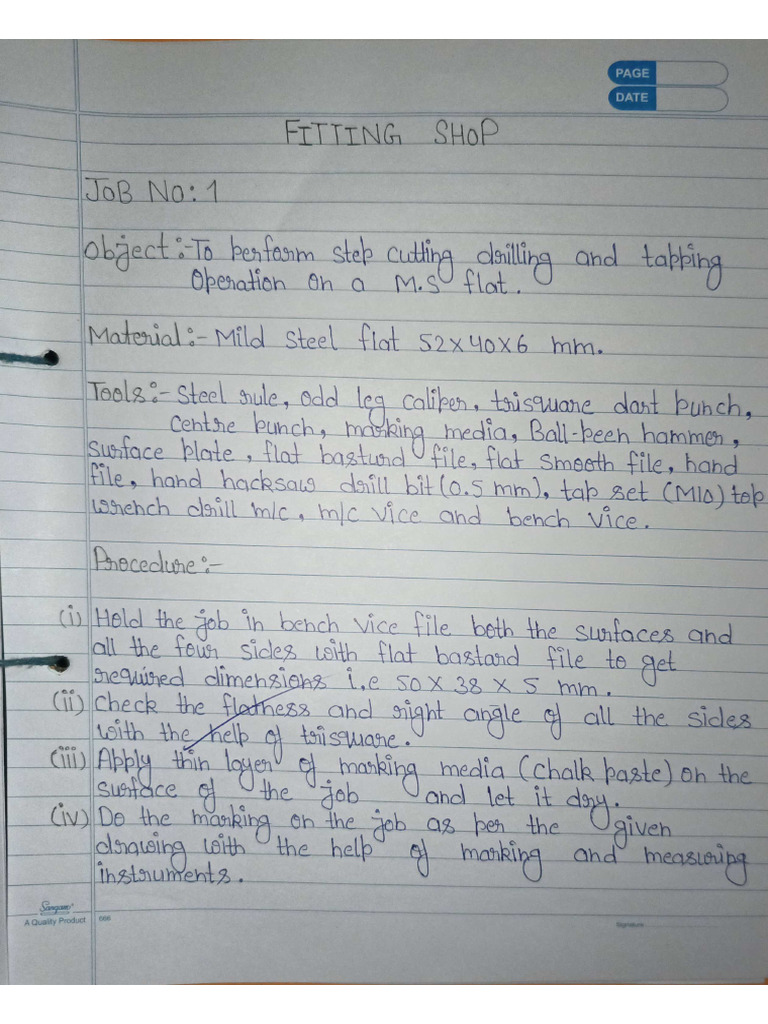 PAGE
DATE
FITTING SHOP
JOB NO: 1
Object:- To perform step cutting drilling and tapping
Operation on a M.S flat.
Material:- Mild Steel flat 52x40x6 mm.
Tools:- Steel rule, odd leg caliper, trisquare dart punch,
Centre punch, marking media, Ball-peen hammer,
Surface plate, flat basturd file, flat smooth file, hand
file, hand hacksaw drill bit (0.5 mm), tap set (M10) top
wrench drill m/c, m/c vice and bench vice.
Procedure:-
(i) Hold the job in bench vice file both the surfaces and
all the four sides with flat bastard file to get
required dimensions i.e 50 x 38 x 5 mm.
(ii) Check the flatness and right angle of all the sides
with the help of trisquare.
(iii) Apply thin layer of marking media (chalk paste) on the
surface of the job and let it dry.
(iv) Do the marking on the job as per the given
drawing with the help of marking and measuring
instruments.
A Quality Product
Signature